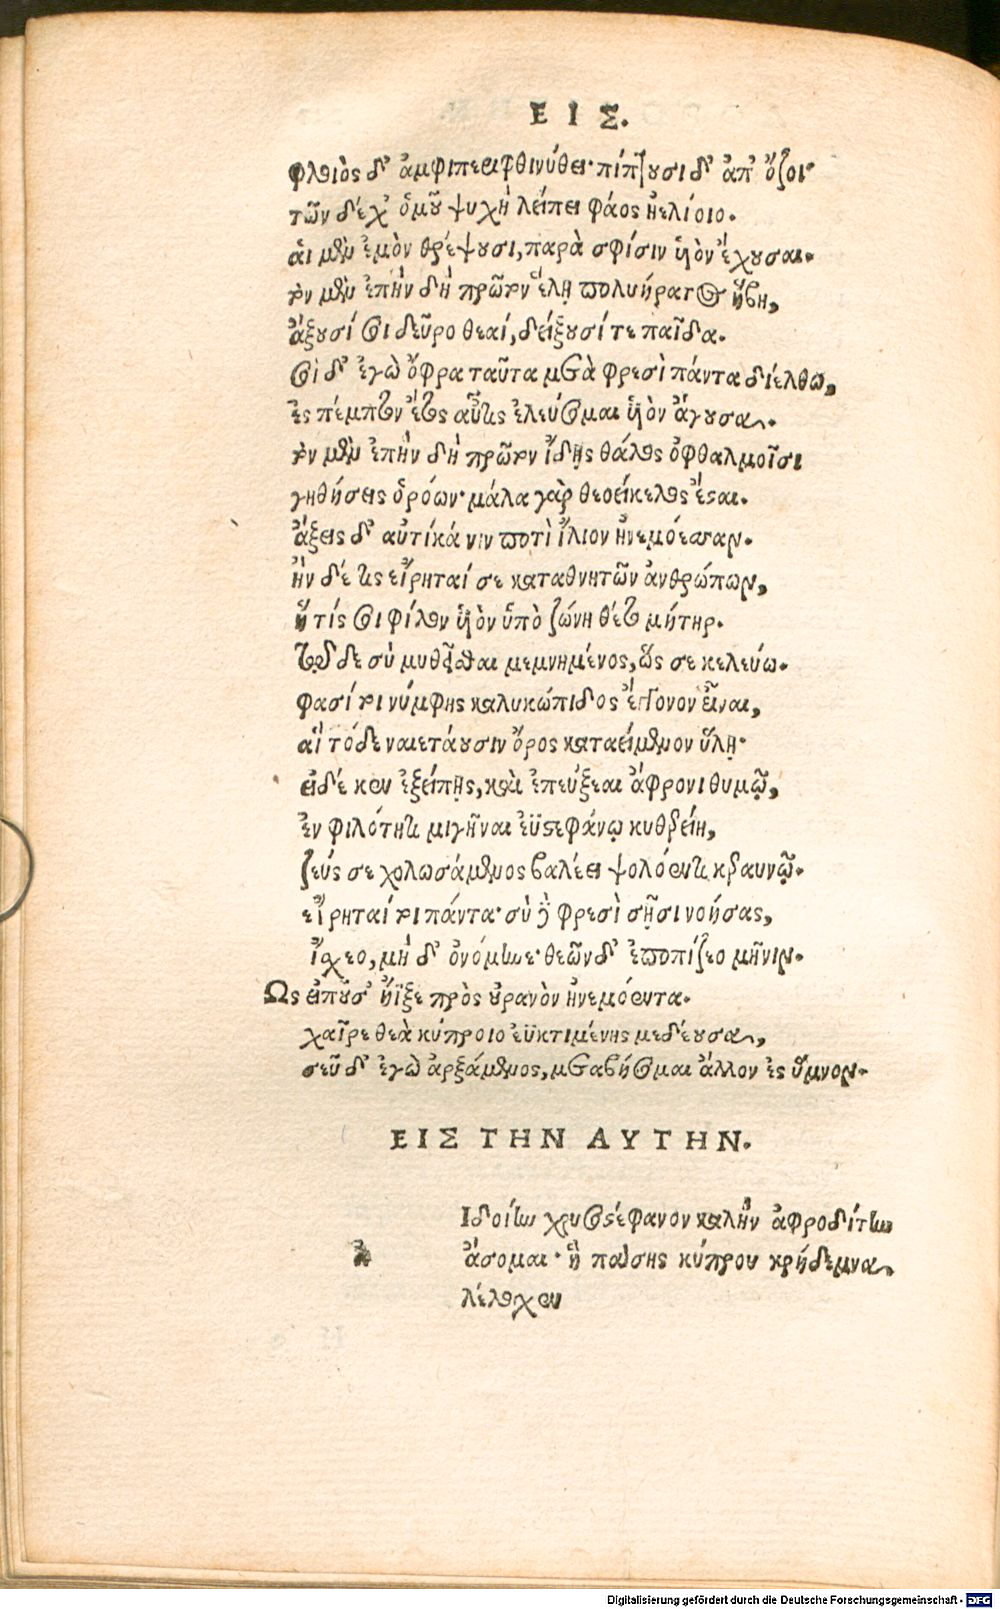 ΕΙΣ.
φλοιὸς δ' ἀμφιπεριφθινύθει· πίπτουσι δ' ἀπ' ὄζοι
τῶν δέ χ' ὁμοῦ ψυχὴ λείπει φάος ἠελίοιο.
αἱ μὲν ἐμὸν θρέψουσι, παρὰ σφίσιν υἱὸν ἔχουσαι.
τὸν μὲν ἐπὴν δὴ πρῶτον ἕλῃ πολυήρατος ἥβη,
ἄξουσί σοι δεῦρο θεαί, δείξουσί τε παῖδα.
σοὶ δ' ἐγὼ ὄφρα ταῦτα μετὰ φρεσὶ πάντα διέλθω,
ἐς πέμπτον ἔτος αὖτις ἐλεύσομαι υἱὸν ἄγουσα.
τὸν μὲν ἐπὴν δὴ πρῶτον ἴδῃς θάλος ὀφθαλμοῖσι
γηθήσεις ὁρόων· μάλα γὰρ θεοείκελος ἔσαι.
ἄξεις δ' αὐτίκά νιν ποτὶ ἴλιον ἠνεμόεσσαν.
ἢν δέ τις εἴρηταί σε καταθνητῶν ἀνθρώπων,
ἥ τίς σοι φίλον υἱὸν ὑπὸ ζώνῃ θέτο μήτηρ.
τῷ δὲ σὺ μυθεῖσθαι μεμνημένος, ὥς σε κελεύω.
φασί τοι νύμφης καλυκώπιδος ἔκγονον εἶναι,
αἳ τόδε ναιετάουσιν ὄρος καταείμενον ὕλῃ·
εἰ δέ κεν ἐξείπῃς, καὶ ἐπεύξεαι ἄφρονι θυμῷ,
ἐν φιλότητι μιγῆναι ἐϋστεφάνῳ κυθερείῃ,
ζεύς σε χολωσάμενος βαλέει ψολόεντι κεραυνῷ.
εἴρηταί τοι πάντα· σὺ δὲ φρεσὶ σῇσι νοήσας,
ἴσχεο, μὴ δ' ὀνόμηνε· θεῶν δ' ἐποπίζεο μῆνιν.
Ὣς εἰποῦσ' ἤϊξε πρὸς οὐρανὸν ἠνεμόεντα.
χαῖρε θεὰ κύπροιο ἐϋκτιμένης μεδέουσα,
σεῦ δ' ἐγὼ ἀρξάμενος, μεταβήσομαι ἄλλον ἐς ὕμνον.
ΕΙΣ ΤΗΝ ΑΥΤΗΝ.
Ιδοίην χρυσοστέφανον καλὴν ἀφροδίτην
α ἄσομαι· ἣ πάσης κύπρου κρήδεμνα
λέλογχεν
Digitalisierung gefördert durch die Deutsche Forschungsgemeinschaft - DFG